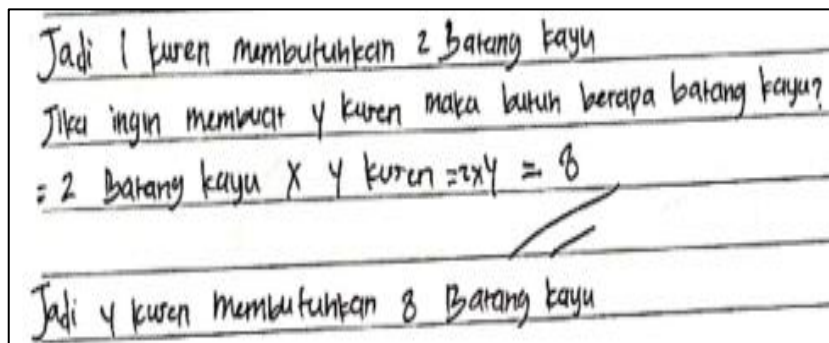 Jadi 1 kusen membutuhkan 2 Batang kayu
Jika ingin membuat 4 kusen maka butuh berapa batang kayu?
= 2 Batang kayu x 4 kusen = 2x4 = 8
Jadi 4 kusen membutuhkan 8 Batang kayu